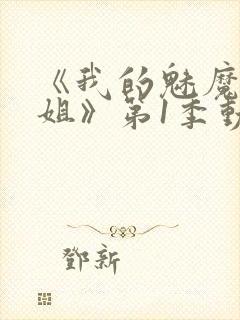 《我的魅魔
姐》第1季動
鄧新